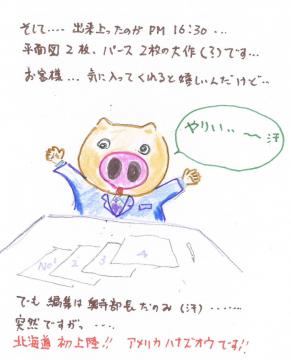 そして‥‥ 出来上ったのが PM 16:30 ‥‥
平面図 2枚、パース 2枚の大作(ろ)です‥‥
お客様‥‥ 気に入ってくれると嬉しいんだけど‥
やりぃ‥ 〜 汗
No1 2 3 4
でも 編集は 部長だのみ (汗) ‥‥‥‥
突然ですがっ ‥‥
北海道 初上陸!! アメリカハナズオウです!!